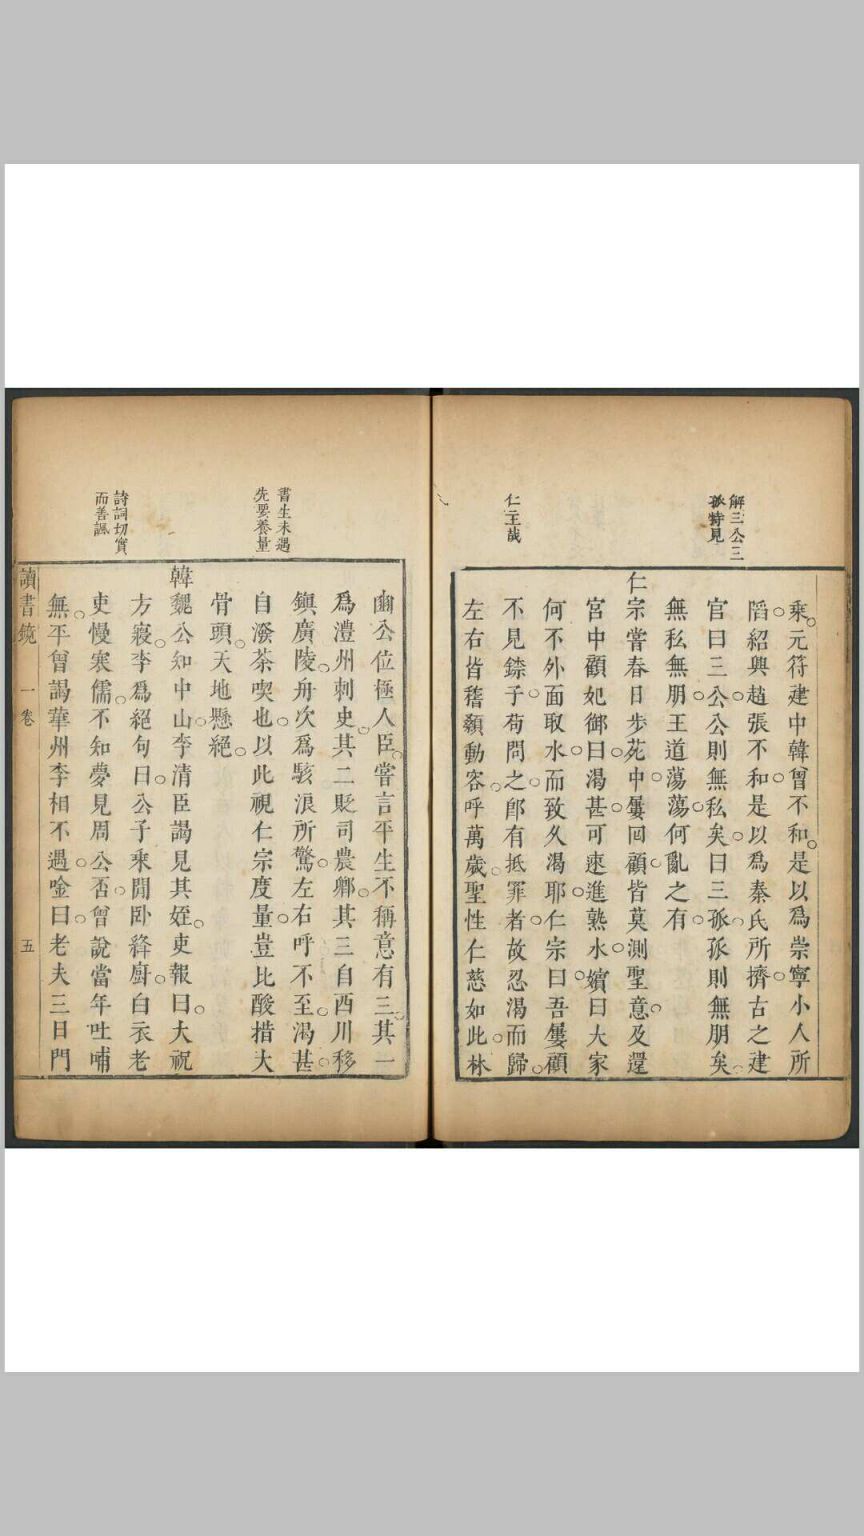 解三公三
孤特見
仁主哉
乘元符建中韓曾不和是以爲崇寧小人所
謟紹興趙張不和是以爲秦氏所擠古之建
官曰三公公則無私矣曰三孤孤則無朋矣
無私無朋王道蕩蕩何亂之有
仁宗嘗春日步苑中屢回顧皆莫測聖意及還
宮中顧妃御曰渴甚可速進熟水嬪曰大家
何不外面取水而致久渴耶仁宗曰吾屢顧
不見鐐子苟問之卽有抵罪者故忍渴而歸
左右皆稽顙動容呼萬歲聖性仁慈如此林
書生未遇
先要養量
詩詞切實
而善諷
幽公位極人臣嘗言平生不稱意有三其一
爲澧州刺史其二貶司農卿其三自西川移
鎭廣陵舟次爲駭浪所驚左右呼不至渴甚
自潑茶喫也以此視仁宗度量豈比酸措大
骨頭天地懸絕
韓魏公知中山李清臣謁見其姪吏報曰大祝
方寢李爲絕句曰公子乘閒卧絳廚白衣老
吏慢寒儒不知夢見周公否曾說當年吐哺
無平曾謁華州李相不遇唫曰老夫三日門
讀書鏡 一卷 五